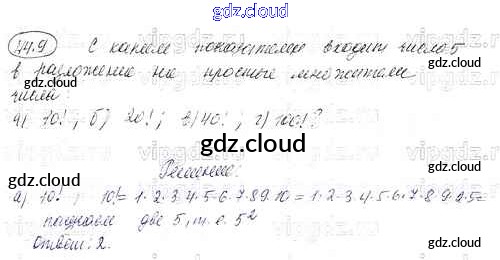 gdz.cloud
44.9 С каким показателем входит число 5
в разложение на простые множители
числа
а) 10!; б) 20!; в) 40!; г) 100!?
gdz.cloud
gdz.cloud
Решение:
gdz.cloud
а) 10!; 10!=1·2·3·4·5·6·7·8·9·10=1·2·3·4·5·6·7·8·9·2·5=
получаем две 5, т.е. 5²
gdz.cloud
Ответ: 2.
gdz.cloud